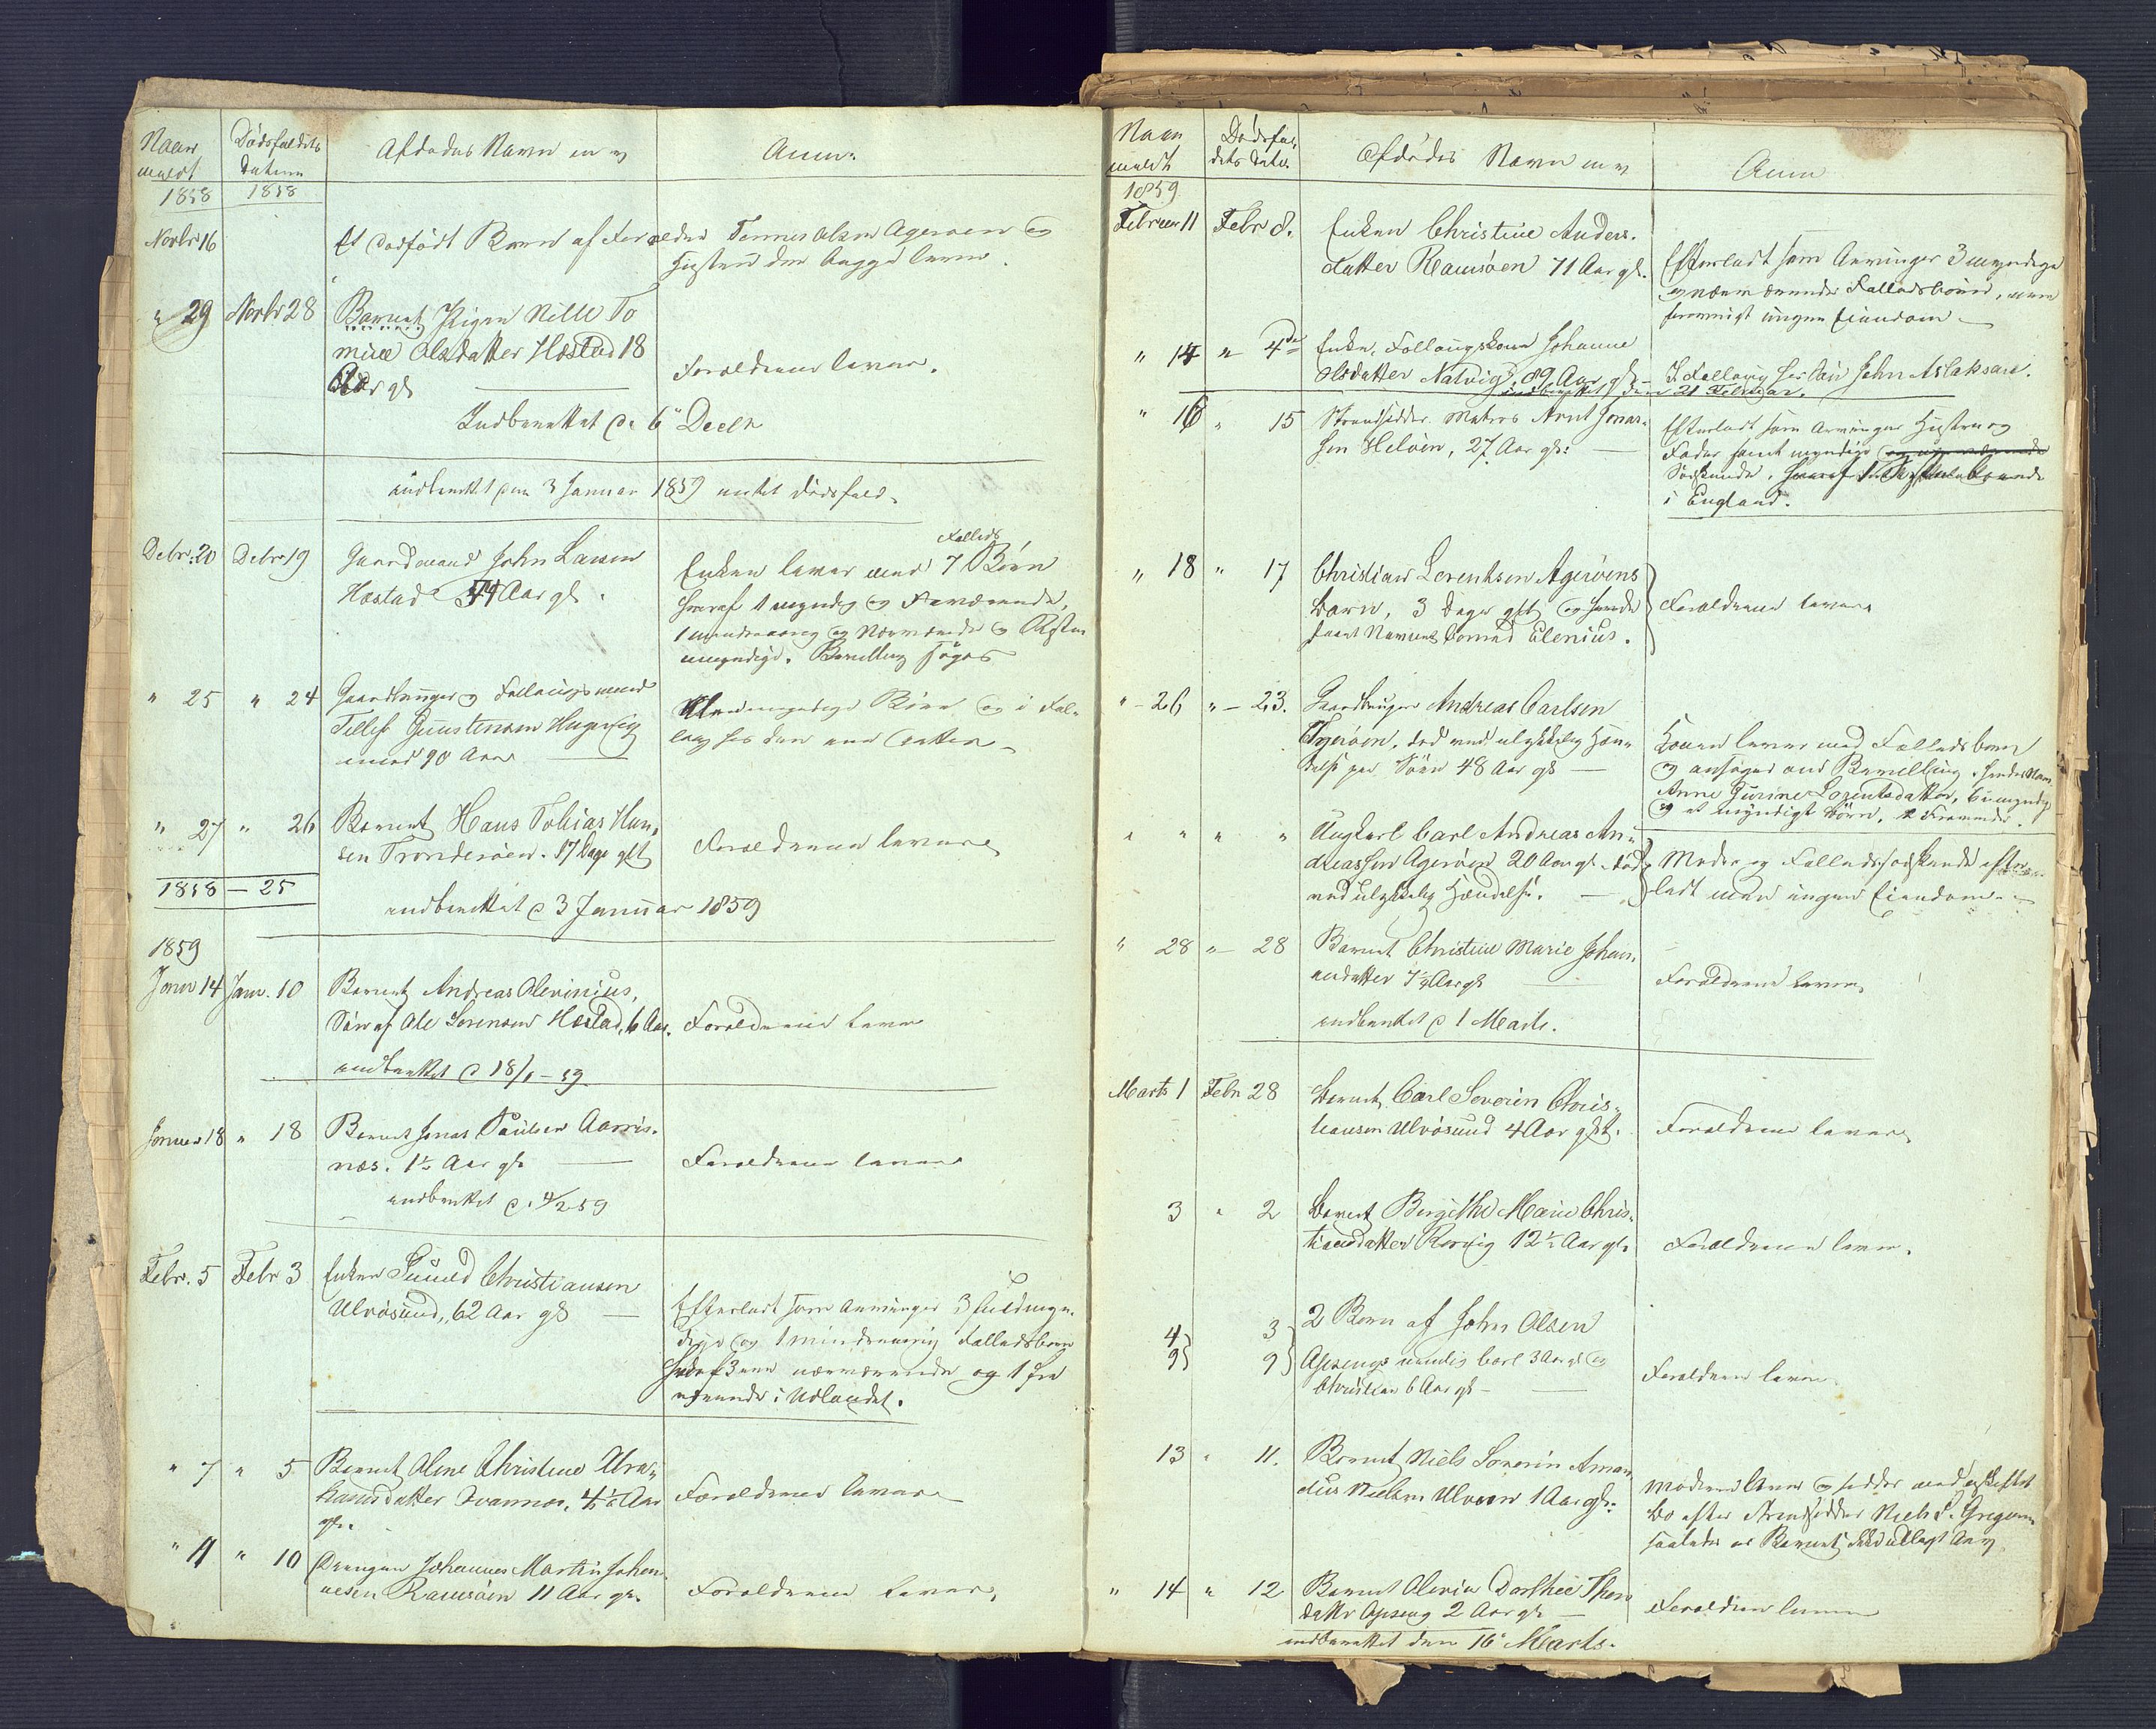 Naar
meldt
Dødsfaldets
Datum
Afdødes Navn m v
Anm:
1858
1858
Novbr 16
Et dødfødt Barn af Forældre Tennes Olsen Agerøen og
Hustru der begge lever.
" 29
Novbr 28
Barnet Pigen Nille To
mine Olsdatter Høstad 18
Aar gl
Forældrene lever.
Indberettet d. 6 Decbr
indberettet den 3 Januar 1859 intet Dødsfald.
Debr. 20
Debr 19
Gaardmand John Larsen
Høstad 54 Aar gl.
Enken lever med 7 Fælleds Børn
hvoraf 1 myndig og fraværende,
1 mindreaarig og nærværende og Resten
umyndige. Bevilling søges
" 25
" 24
Gaardbruger og Follaugsmand
Tellef Gunstensen
90 Aar
myndige Børn og i Fol-
laug hos den ene Datter
" 27
" 26
Barnet Hans Tobias Han-
sen Trondersøen. 17 Dage glt
Forældrene lever
1858 – 25
indberettet d 3 Januar 1859
1859
Janur 14
Janr. 10
Barnet Andreas Olevinius,
Søn af Ole Sørensen Høstad, 6 Aar.
Forældrene lever
indberettet d 18/1 – 59
Januar 18
" 18
Barnet Jonas Paulsen Aarris-
næs. 1½ Aar gl.
Forældrene lever
indberettet d. 4/2 59
Febr. 5
Febr 3
Enken Gunild Christiansen
Ulvøsund, 62 Aar gl
Efterladt som Arvinger 3 fuldmyn-
dige og 1 mindreaarig Fælledsbørn
hvoraf 3 ere nærværende og 1 fra
værende i Udlandet.
" 7
" 5
Barnet Oline Christine Abra-
hamsdatter Svannes, 4½ Aar
gl.
Forældrene lever
" 11
" 10
Drengen Johannes Martin Johan-
nesen Ramsøen 11 Aar gl.
Forældrene lever,
Naar
meldt
Dødsfal-
dets Datum
Afdødes Navn m v
Anm
1859
Februar 11
Febr 8.
Enken Christine Anders-
datter Ramsøen 71 Aar gl.
Efterladt som Arvinger 3 myndige
og nærværende Fælledsbørn, men
forøvrigt ingen Eiendom
" 14
" 4de
Enke, Follaugskone Johanne
Olsdatter Natvig, 89 Aar gl –
I Follaug hos Søn John Aslaksen.
indberettet den 21 Februar.
" 16
" 15
Strandsidder Matros Arnt Jonas-
sen Heløen, 27 Aar gl:
Efterladt som Arvinger Hustru og
Fader samt myndige
Sødskende, hvoraf
i England.
" 18
" 17
Christian Lorentsen Agerøens
Barn, 3 Dage glt og havde
faaet Navnet Conrad Elenius.
Forældrene lever
" – 26
" – 23.
Gaardbruger Andreas Carlsen
Agerøen, død ved ulykkelig Hæn-
delse paa Søen 48 Aar gl –
Konen lever med Fælleds børn
og ansøger om Bevilling. Hendes Navn
Anne Gurine Lorentsdatter, 6 umyndige
og et myndigt Børn,
" "
" "
Ungkarl Carl Andreas An-
dreassen Agerøen 20 Aar gl. død
ved ulykkelig Hændelse.
Moder og Fælledssødskende efter-
ladt men ingen Eiendom.
" 28
" – 28
Barnet Christine Marie Johan-
nesdatter 7½ Aar gl
Forældrene lever,
indberettet d 1 Marts.
Marts 1
Febr 28
Barnet Carl Severin Chris-
tiansen Ulvøsund 4 Aar glt.
Forældrene lever
3
" 2
Barnet Birgithe Marie Chris-
tiansdatter Rosvig 12½ Aar gl.
Forældrene lever.
4
9
3
9
2 Børn af John Olsen
Apseng nemlig Carl 3 Aar gl og
Christian 6 Aar gl –
Forældrene lever
13
" 11.
Barnet Niels Severin Aman-
dus Nielsen Ulvøen 1 Aar gl:
Moderen lever og sidder med uskiftet
Bo efter Strandsidder Niels S. Gregersen
saaledes at Barnet
" 14
" 12
Barnet Olevia Dorthea Thors
datter Apseng 2 Aar gl –
Forældrene lever
indberettet den 16 Marts.